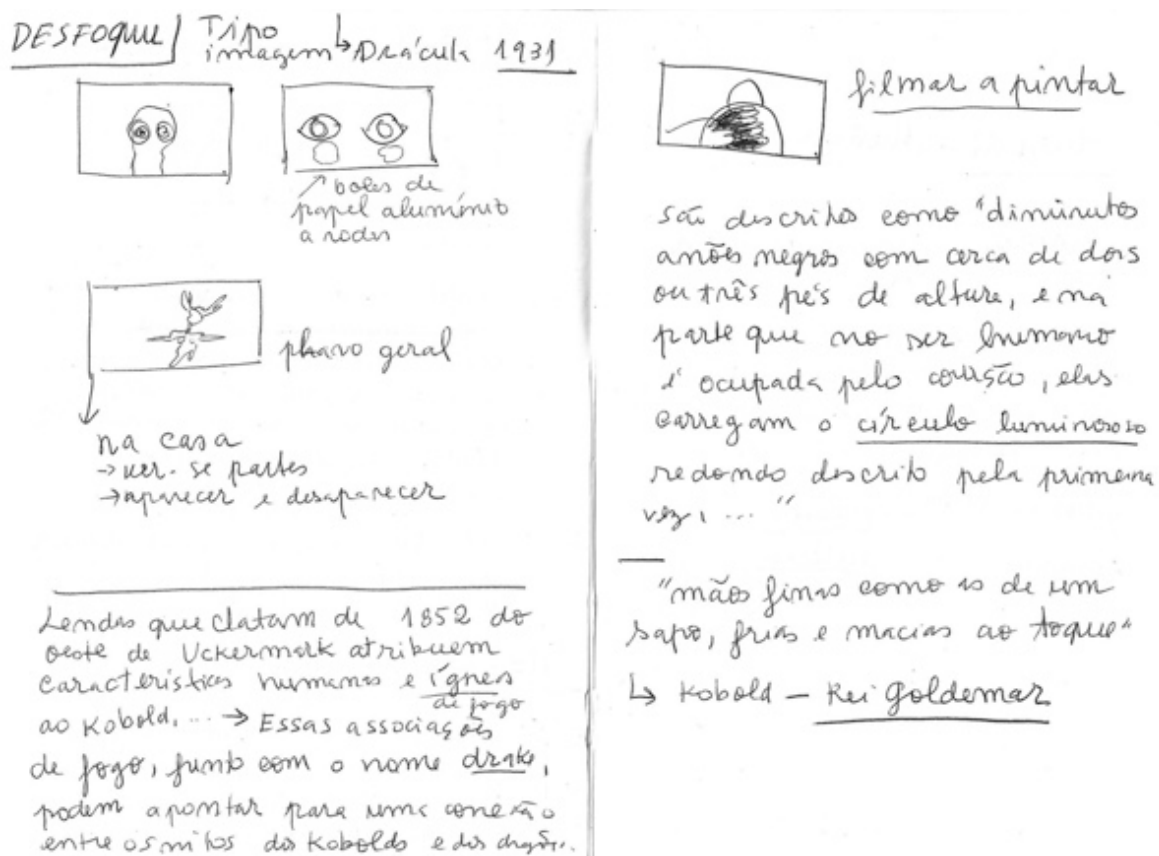 DESFOQUE | Tipo
imagem ↳ Drácula 1931
↗ bolas de
papel alumínio
a rodar
plano geral
na casa
→ ver-se partes
→ aparecer e desaparecer
Lendas que datam de 1852 do
oeste de Uckermark atribuem
características humanas e ígneas
de fogo
ao Kobold, ... → Essas associações
de fogo, junto com o nome drake,
podem apontar para uma conexão
entre os mitos dos Kobolds e dos dragões.
filmar a pintar
são descritos como "diminutos
anões negros com cerca de dois
ou três pés de altura, e na
parte que no ser humano
é ocupada pelo coração, elas
carregam o círculo luminoso
redondo descrito pela primeira
vez, ..."
"mãos finas como as de um
sapo, frias e macias ao toque"
↳ Kobold — Rei Goldemar